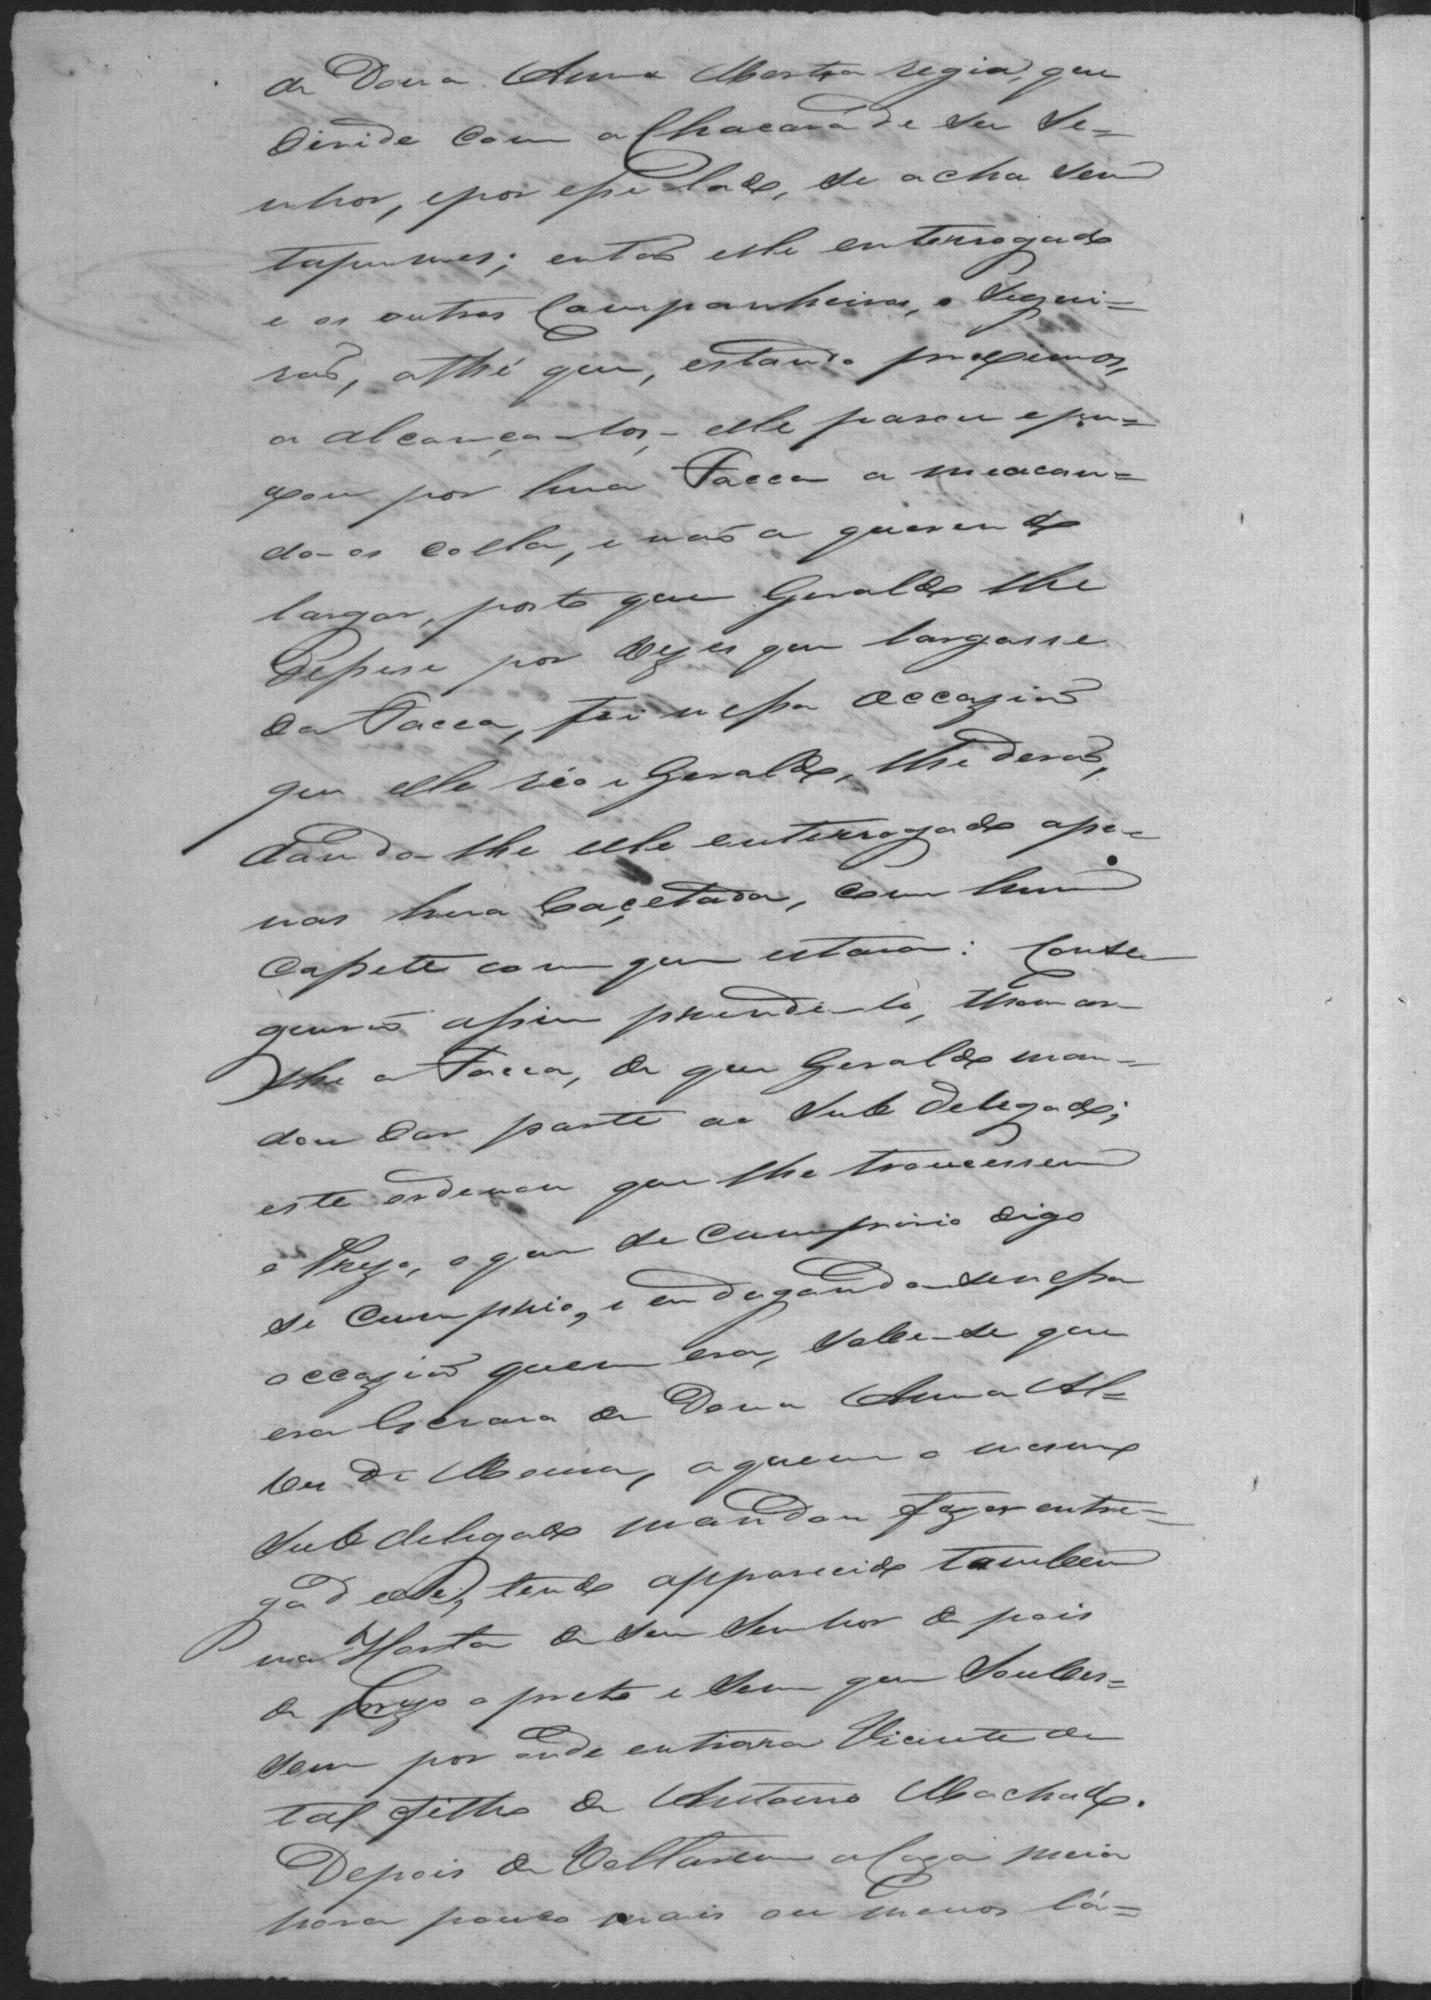 de Dona Anna Mestra regia, que
divide com a Chacara de seu Se=
nhor, e por esse lado, se acha sem
tapumes; então elle enterrogado
e os outros Companheiros, o segui=
rão, athé que, estando proximos,
a alcança-los, elle parou e pu=
xou por hua Facca a meacan=
do-os co ella, e não a querendo
largar, posto que Geraldo lhe
dissese por vezes que largasse
da Facca, foi nessa occazião
que elle réo e Geraldo, lhe derão,
dando-lhe elle enterrogado ape=
nas hua Caçetada, com hum
Capete com que estava: Conse
guirão assim prende-lo, thomar
lhe a Facca, de que Geraldo man=
dou dar parte ao Sub delegado;
este ordenou que lhe troucessem
o Prezo, o que se cumpririo digo
se cumprio, e endagando-se nessa
occazião quem era, sabe-se que
era Escravo de Dona Anna Al=
ves de Moura, a quem o mesmo
Sub delegado mandou fazer entre=
ga delle, tendo apparecido tambem
na Horta de seu Senhor depois
de prezo o preto e sem que soubes=
sem por onde entrara Vicente de
tal filho de Antonio Machado.
Depois de Voltarem a Caza meia
hora pouco mais ou menos lá=